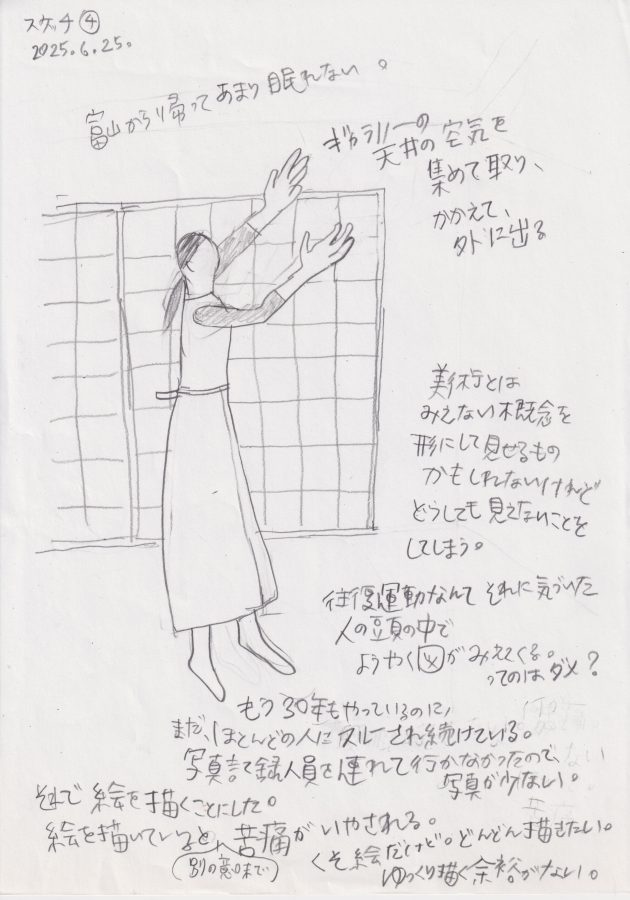 スケッチ④
2025.6.25.
富山から帰ってあまり眠れない。
ギャラリーの
天井の空気を
集めて取り、
かかえて、
外に出る
美術とは
みえない概念を
形にして見せるもの
かもしれないけれど
どうしても見えないことを
してしまう。
往復運動なんてそれに気づいた
人の頭の中で
ようやく図がみえてくる。
ってのはダメ?
もう30年もやっているのに
まだ、ほとんどの人にスルーされ続けている。
写真記録人員を連れて行かなかったので、
写真が少ない。
それで絵を描くことにした。
絵を描いていると、苦痛がいやされる。
(別の意味で)
くそ絵だけど。どんどん描きたい。
ゆっくり描く余裕がない。